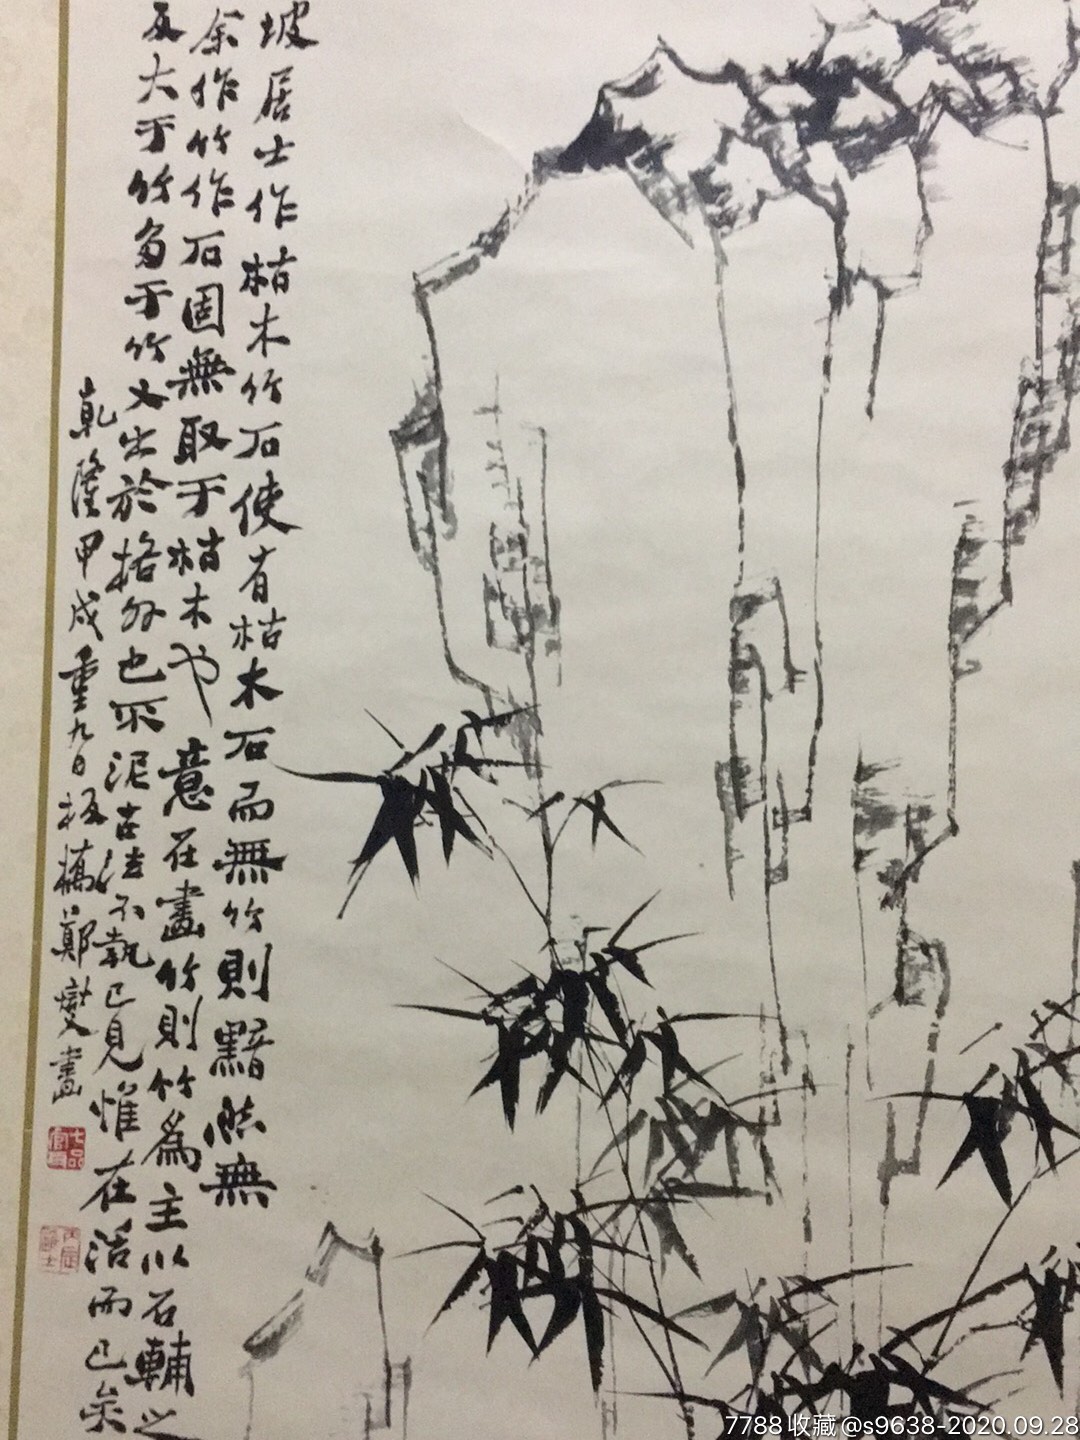 坡居士作枯木竹石使有枯木石而無竹則黯然無
余作竹作石固無取于枯木也意在畫竹則竹為主以石輔之
反大于竹多于竹又出於格外也不泥古法不執己見惟在活而已矣
乾隆甲戌重九日板橋鄭燮畫
七品官耳
丙辰進士
7788收藏@s9638-2020.09.28